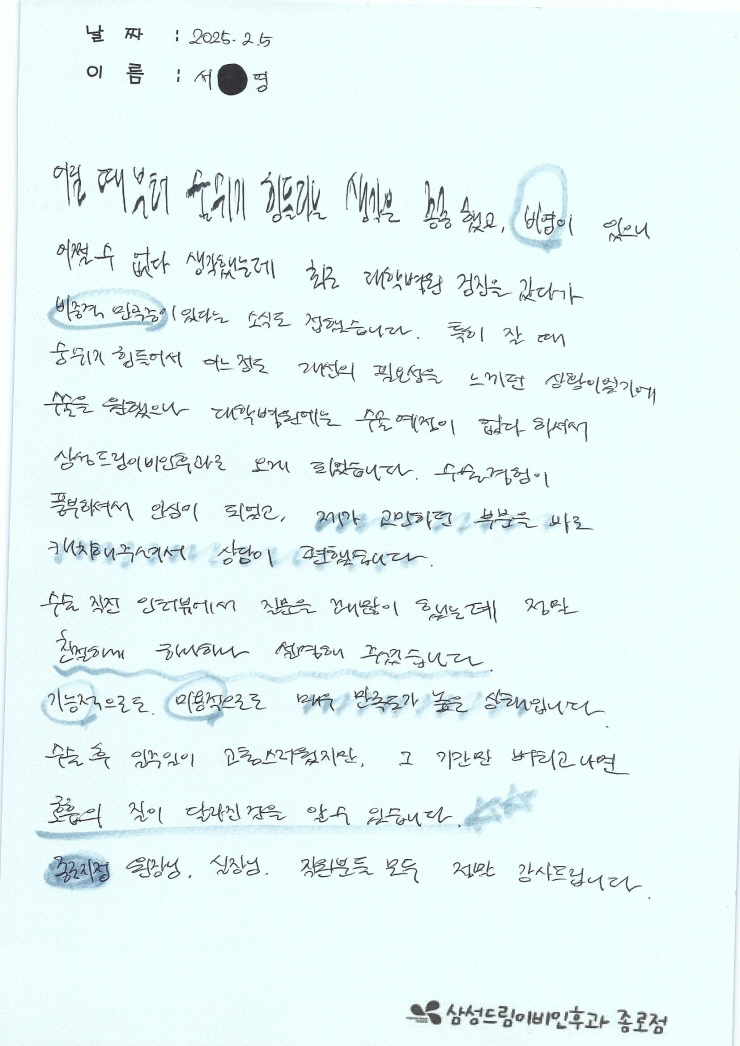 날 짜 : 2025. 2. 5
이 름 : 서 영
어릴 때부터 숨쉬기 힘들다는 생각은 종종 했고, 비염이 있으니
어쩔 수 없다 생각했는데 최근 대학병원 검진을 갔다가
비중격 만곡증이 있다는 소식도 접했습니다. 특히 잘 때
숨쉬기 힘들어서 어느정도 개선의 필요성을 느끼던 상황이었기에
수술을 원했으나 대학병원에는 수술예정이 없다 하셔서
삼성드림이비인후과로 오게 되었습니다. 수술경험이
풍부하셔서 안심이 되었고, 제가 고민하던 부분을 바로
캐치해주셔서 상담이 편했습니다.
수술 직전 인터뷰에서 질문을 꽤많이 했는데 정말
친절하게 하나하나 설명해 주셨습니다.
기능적으로도. 미용적으로도 매우 만족도가 높은 상태입니다.
수술 후 일주일이 고통스러웠지만, 그 기간만 버티고나면
호흡의 질이 달라진 것을 알 수 있습니다.
종로지점 원장님, 실장님. 직원분들 모두 정말 감사드립니다.
삼성드림이비인후과 종로점